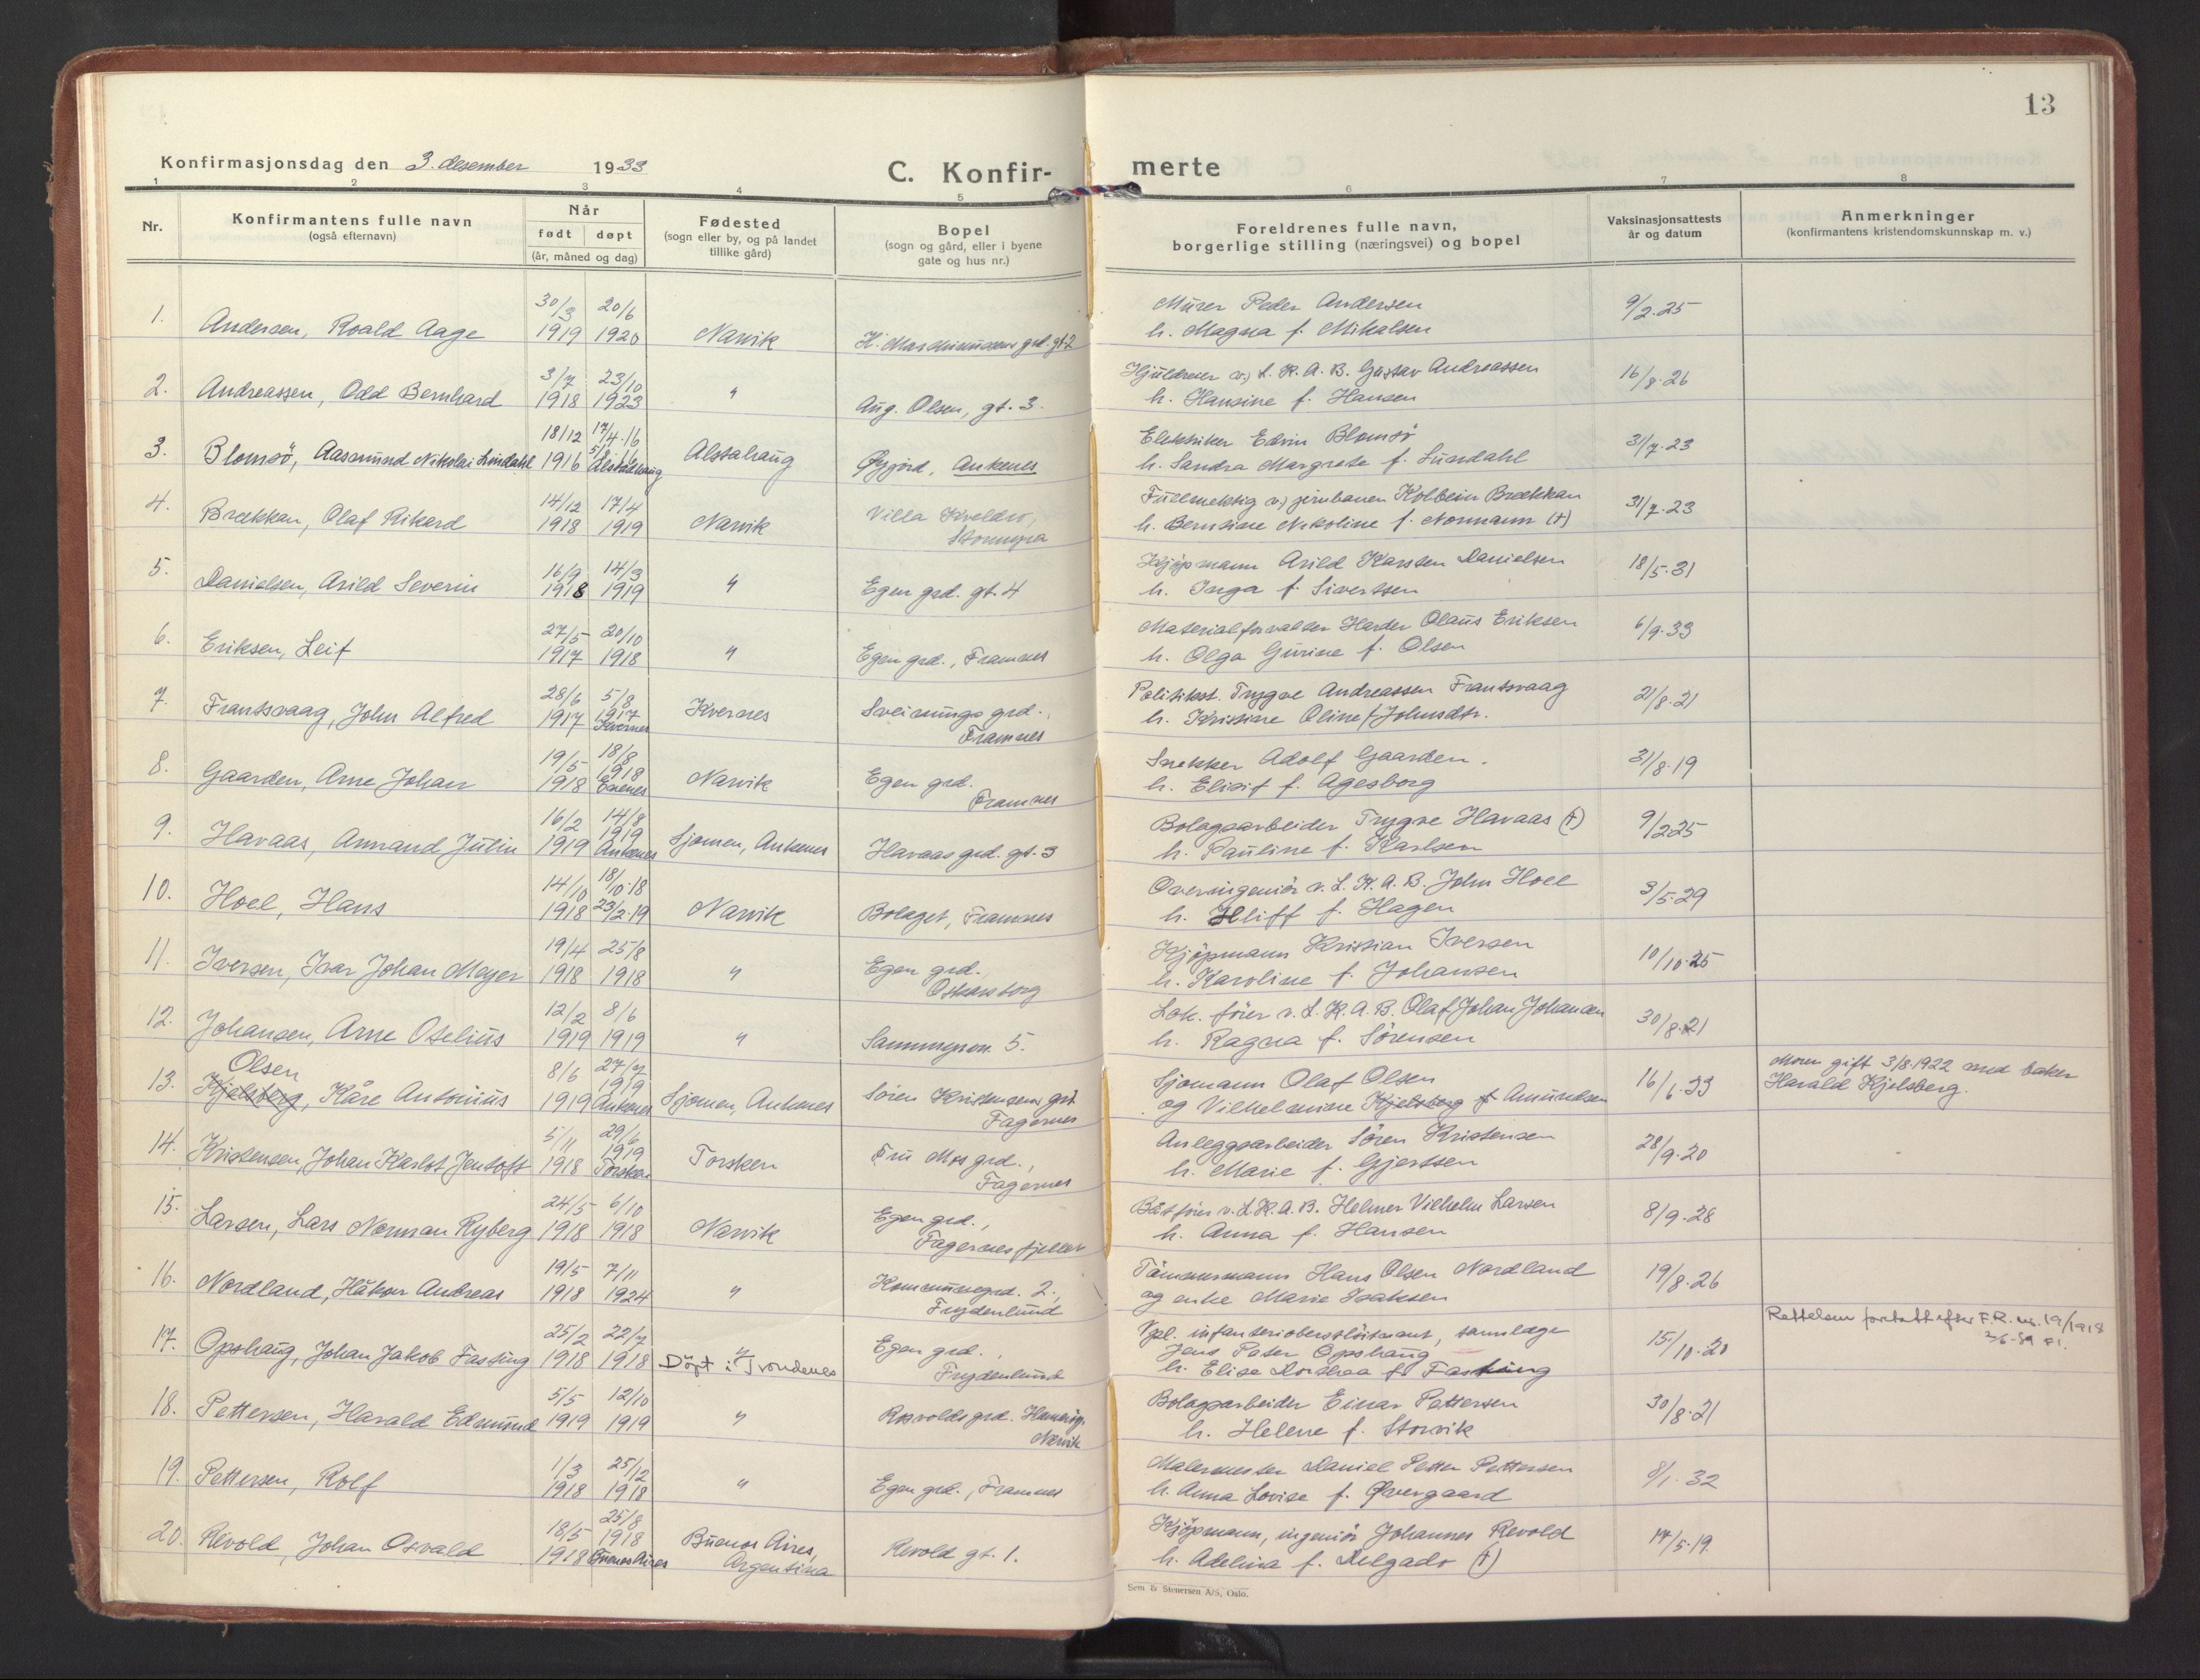 13
Konfirmasjonsdag den 3. desember 1933
C. Konfir-
merte
1 2 3 4 5 6 7 8
Nr.
Konfirmantens fulle navn
(også efternavn)
Når
født døpt
(år, måned og dag)
Fødested
(sogn eller by, og på landet
tillike gård)
Bopel
(sogn og gård, eller i byene
gate og hus nr.)
Foreldrenes fulle navn,
borgerlige stilling (næringsvei) og bopel
Vaksinasjonsattests
år og datum
Anmerkninger
(konfirmantens kristendomskunnskap m. v.)
1. 30/3 20/6 Murer Peder Andersen 9/2.25
Andersen, Roald Aage 1919 1920 Narvik grd. gt. 2 h. Magna f. Mikalsen
2. 3/7 23/10 v) L. K. A. B. Gustav Andreassen 16/8.26
Andreassen, Odd Bernhard 1918 1923 " Aug. Olsen, gt. 3. h. Hansine f. Hansen
3. 18/12 17/4.16 Alstahaug Elektriker Edvin Blomsö 31/7.23
Blomsö, Aasmund Nikolai Lindahl 1916 Alstadhaug Øyjord, Ankenes h. Sandra Margrete f. Lundahl
4. 14/12 17/4 Villa Fullmektig v) jernbanen Kolbein Brækkan 31/7.23
Brækkan, Olaf Rikard 1918 1919 Narvik h. Bernsine Nikoline f. Normann (†)
5. 16/9 14/3 Kjöpmann Arild Karsten Danielsen 18/5.31
Danielsen, Arild Severin 1918 1919 " Egen grd. gt. 4 h. Inga f. Sivertsen
6. 27/5 20/10 Materialforvalter Harder Olaus Eriksen 6/9.33
Eriksen, Leif 1917 1918 " Egen grd., Framnes h. Olga Gurine f. Olsen
7. 28/6 5/8 Kvernes Sveinungs grd., Politikst. Trygve Andreassen Frantsvaag 21/8.21
Frantsvaag, John Alfred 1917 1917 Kvernes Framnes h. Kristine Oline f. Johnsdtr.
8. 19/5 18/8 Snekker Adolf Gaarden. 31/8.19
Gaarden, Arne Johan 1918 1918 Evenes Narvik Egen grd. Framnes h. Elisif f. Agesborg
9. 16/2 14/8 Bolagsarbeider Trygve Havaas (†) 9/2.25
Havaas, Armand Julin 1919 1919 Ankenes Sjomen, Ankenes Havaas grd. gt. 3 h. Pauline f. Karlsen
10. 14/10 18/10.18 Overingeniör v. L. K. A. B. John Hoel 3/5.29
Hoel, Hans 1918 23/2.19 Narvik Bolaget, Framnes h. f. Hagen
11. 19/4 25/8 Kjöpmann Kristian Iversen 10/10.25
Iversen, Ivar Johan Meyer 1918 1918 " Egen grd., Oskarsborg h. Karoline f. Johansen
12. 12/2 8/6 Lok. förer v. L. K. A. B. Olaf Johan Johansen 30/8.21
Johansen, Arne Otelius 1919 1919 " 5. h. Ragna f. Sörensen
Olsen
13. 8/6 27/7 Sjomann Olaf Olsen 16/1.33 Moren gift 3/8.1922 med baker
Kjelsberg, Kåre Antonius 1919 1919 Ankenes Sjomen, Ankenes Sören Kristensens grd. Fagernes og Vilhelmine Kjelsberg f. Amundsen Harald Kjelsberg.
14. 5/11 29/6 Anleggsarbeider Sören Kristensen 28/9.20
Kristensen, Johan Karlot Jentoft 1918 1919 Torsken Torsken Fru Mos grd., Fagernes h. Marie f. Gjertsen
15. 24/5 6/10 Båtförer v. L. K. A. B. Helmer Vilhelm Larsen 8/9.28
Larsen, Lars Norman Ryberg 1918 1918 Narvik Egen grd., Fagernesfjellet h. Anna f. Hansen
16. 19/5 7/11 Tömmermann Hans Olsen Nordland 19/8.26
Nordland, Håkon Andreas 1918 1924 " Kommunegrd. 2., Frydenlund og enke Marie Isaksen
17. 25/2 22/7 Vpl. infanterioberstlöitnant, tannlæge 15/10.20 Rettelsen foretatt efter F.R. nr. 19/1918
Opshaug, Johan Jakob Fasting 1918 1918 " Döpt i Trondenes Egen grd., Frydenlund Jens Peter Opshaug
h. Elise Dorthea f. Fasting
18. 5/5 12/10 Bolagsarbeider Einar Pettersen 30/8.21
Pettersen, Harald Edmund 1919 1919 " Rosvolds grd. Narvik h. Helene f. Storvik
19. 1/3 25/12 Malermester Daniel Petter Pettersen 8/1.32
Pettersen, Rolf 1918 1918 " Egen grd., Framnes h. Anna Lovise f. Øvergaard
20. 18/5 25/8 Kjöpmann, ingeniör Johannes Revold 14/5.19.
Revold, Johan Osvald 1918 1918 Buenos Aires Buenos Aires, Argentina Revold gt. 1. h. Adelina f. Delgado (†)
Sem & Stenersen A/S, Oslo.